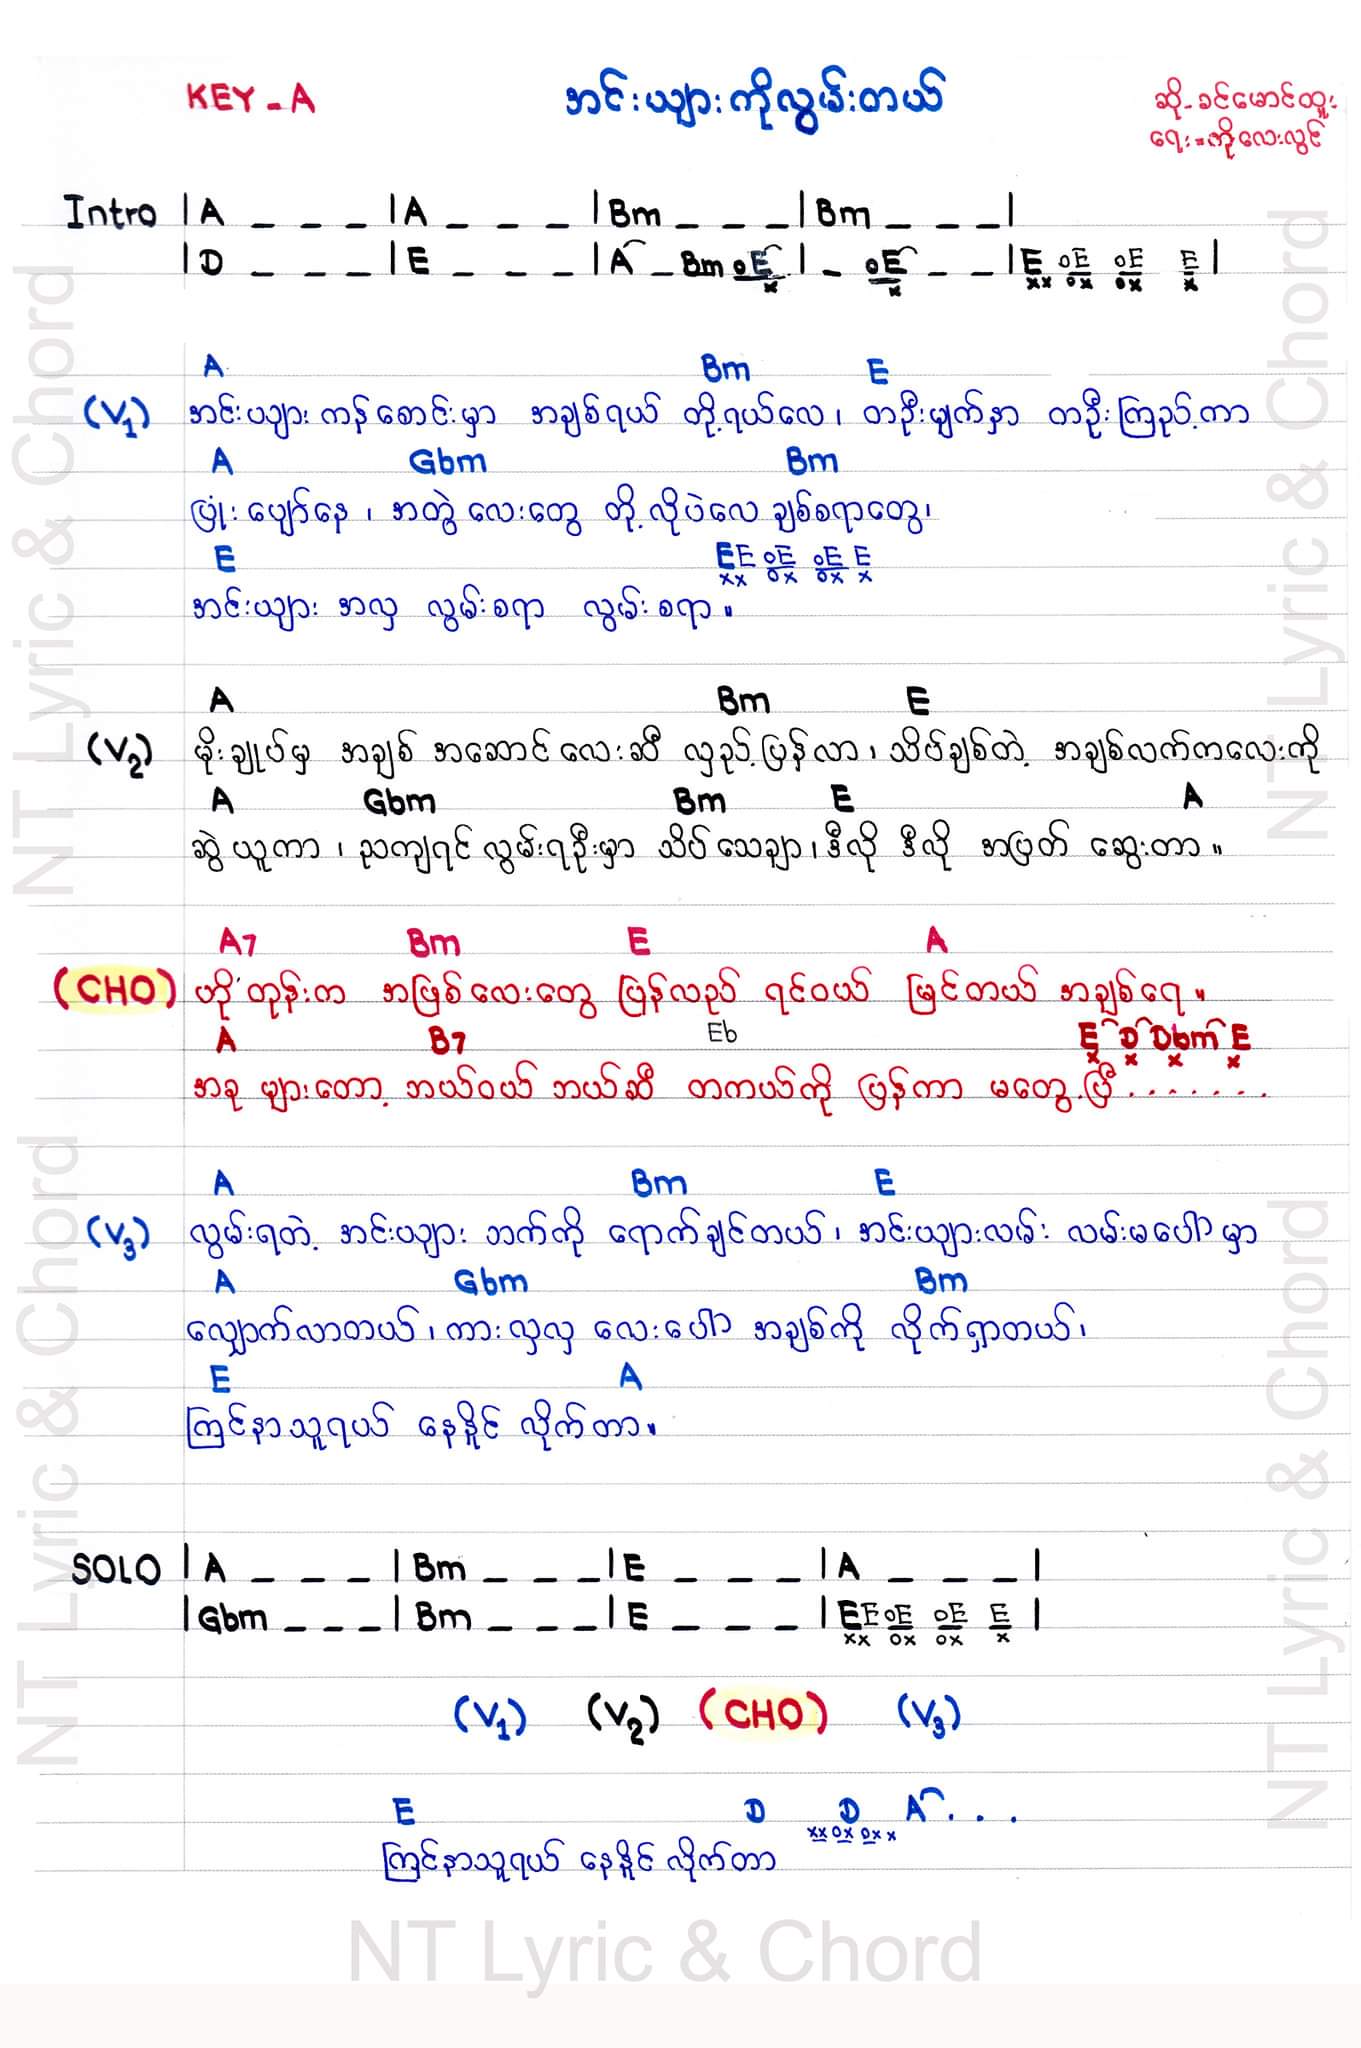 KEY - A
အင်းယျားကိုလွမ်းတယ်
ဆို - ခင်မောင်ထူး
ရေး = ကိုလေးလွင်
Intro | A _ _ _ | A _ _ _ | Bm _ _ _ | Bm _ _ _ |
| D _ _ _ | E _ _ _ | A _ Bm oE | _ oE _ _ | E oE oE E |
x x xx ox ox x
A Bm E
(V1) အင်းယျား ကန်စောင်းမှာ အချစ်ရယ် တို့ရယ်လေ၊ တဦးမျက်နှာ တဦးကြည့်ကာ
A Gbm Bm
ပြုံးပျော်နေ ၊ အတွဲလေးတွေ တို့လိုပဲလေ ချစ်စရာတွေ၊
E EE oE oE E
xx ox ox x
အင်းယျား အလှ လွမ်းစရာ လွမ်းစရာ ။
A Bm E
(V2) မိုးချုပ်မှ အချစ် အဆောင်လေးဆီ လှည့်ပြန်လာ ၊ သိပ်ချစ်တဲ့ အချစ်လက်ကလေးကို
A Gbm Bm E A
ဆွဲယူကာ ၊ ညကျရင် လွမ်းရဦးမှာ သိပ်သေချာ ၊ ဒီလို ဒီလို အမြတ် ဆွေးတာ ။
A7 Bm E A
(CHO) ဟိုတုန်းက အဖြစ်လေးတွေ ပြန်လည် ရင်ဝယ် မြင်တယ် အချစ်ရေ ။
A B7 Eb E D Dbm E
x x x x
အခု များတော့ ဘယ်ဝယ် ဘယ်ဆီ တကယ်ကို ပြန်ကာ မတွေ့ပြီ .......
A Bm E
(V3) လွမ်းရတဲ့ အင်းယျား ဘက်ကို ရောက်ချင်တယ် ၊ အင်းယျားလမ်း လမ်းမပေါ်မှာ
A Gbm Bm
လျှောက်လာတယ် ၊ ကားလှလှ လေးပေါ် အချစ်ကို လိုက်ရှာတယ် ၊
E A
ကြင်နာသူရယ် နေနိုင် လိုက်တာ ။
SOLO | A _ _ _ | Bm _ _ _ | E _ _ _ | A _ _ _ |
| Gbm _ _ _ | Bm _ _ _ | E _ _ _ | EE oE oE E |
xx ox ox x
(V1) (V2) (CHO) (V3)
E D D A . . .
xx ox oxx
ကြင်နာသူရယ် နေနိုင် လိုက်တာ
NT Lyric & Chord
NT Lyric & Chord
NT Lyric & Chord
NT Lyric & Chord
NT Lyric & Chord